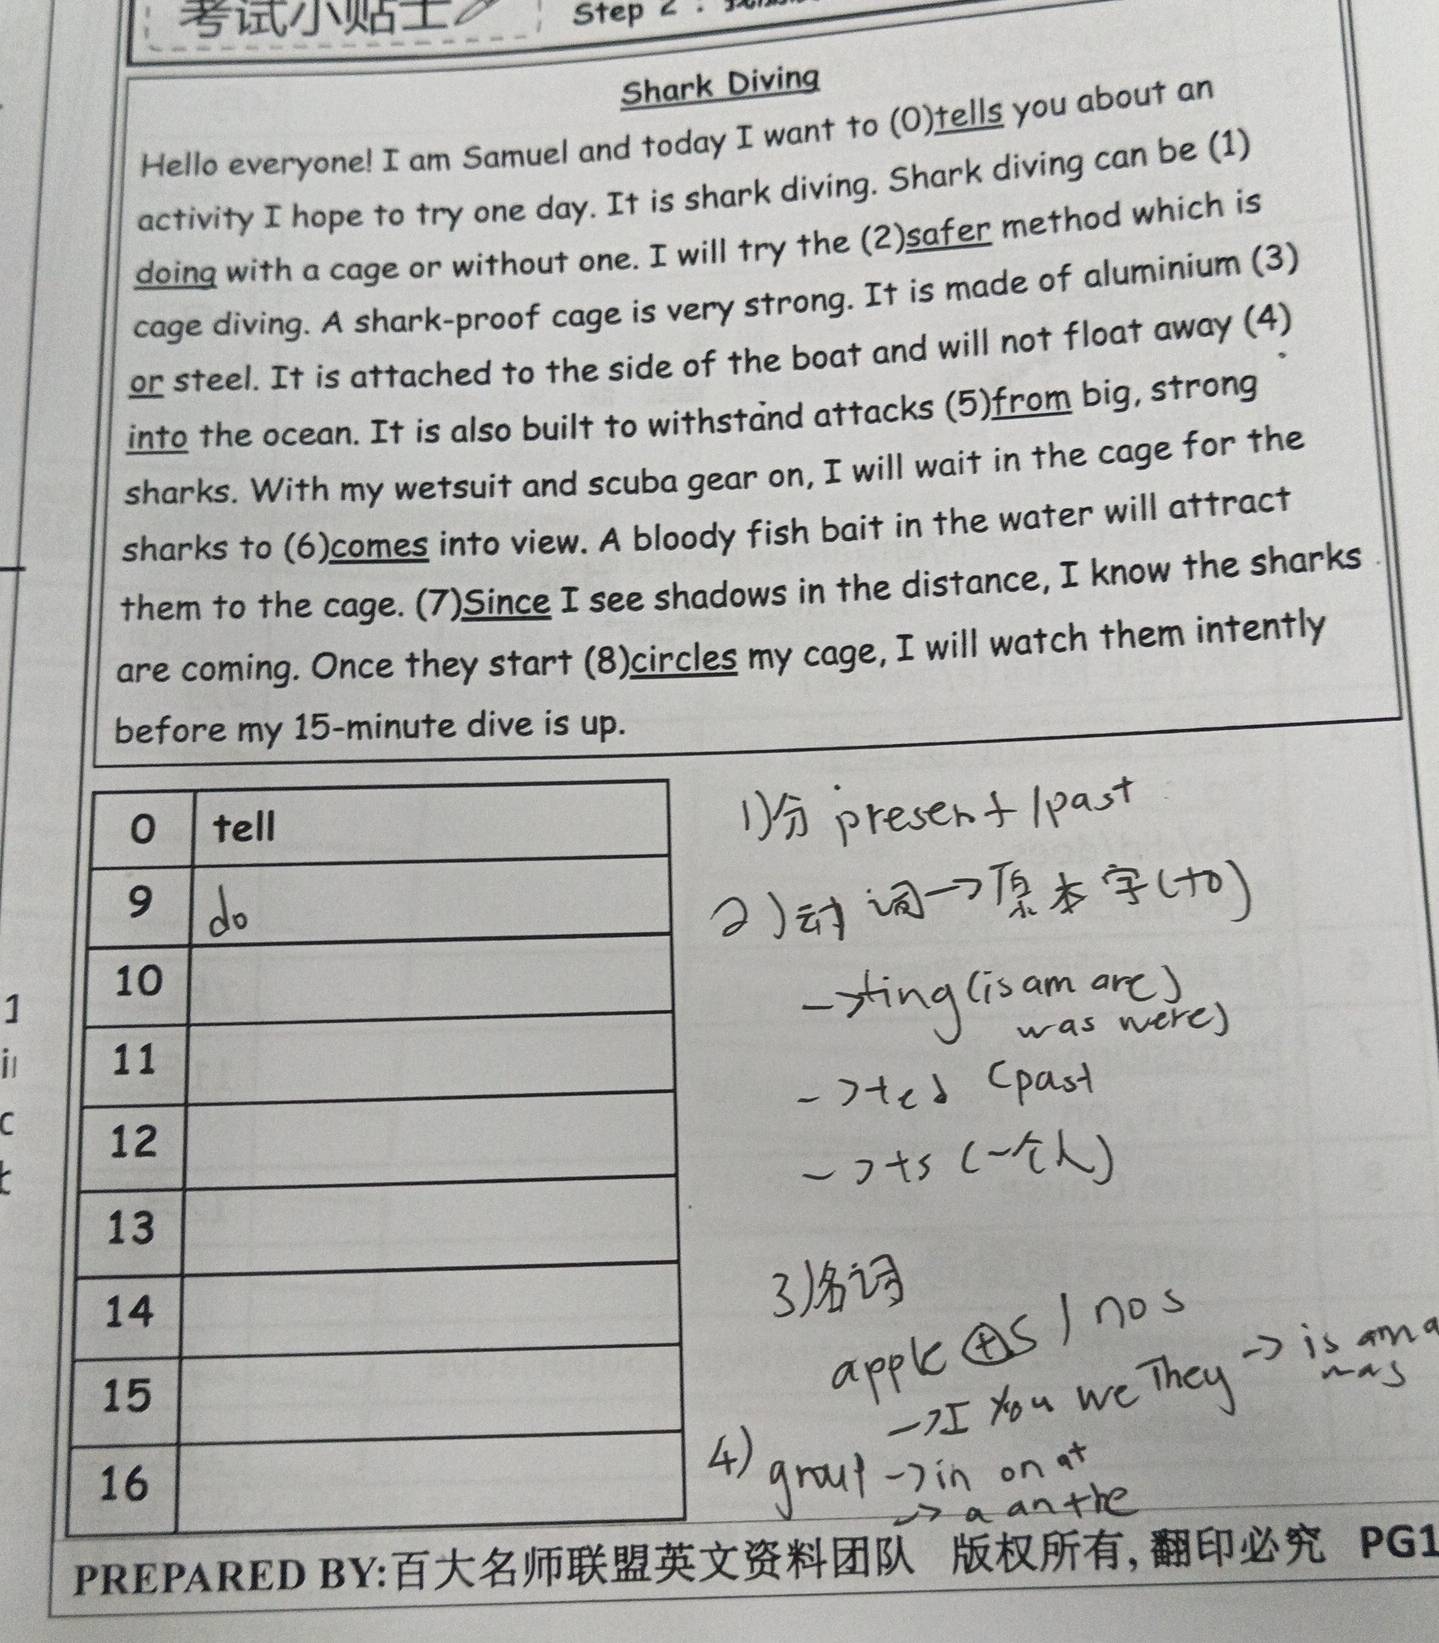 考试小贴士
Step 2 :
Shark Diving
Hello everyone! I am Samuel and today I want to (0)tells you about an
activity I hope to try one day. It is shark diving. Shark diving can be (1)
doing with a cage or without one. I will try the (2)safer method which is
cage diving. A shark-proof cage is very strong. It is made of aluminium (3)
or steel. It is attached to the side of the boat and will not float away (4)
into the ocean. It is also built to withstand attacks (5)from big, strong
sharks. With my wetsuit and scuba gear on, I will wait in the cage for the
sharks to (6)comes into view. A bloody fish bait in the water will attract
them to the cage. (7)Since I see shadows in the distance, I know the sharks
are coming. Once they start (8)circles my cage, I will watch them intently
before my 15-minute dive is up.
0 tell
9 do
10
11
12
13
14
15
16
1)分 present/past
2)动词→原本字(to)
→+ing(is am are)
was were)
->+ed (past
->+s (一个人)
3)名词
apple +s / no s
→I You we They → is am a
was
4) group →in on at
→ a an the
PREPARED BY:百大名师联盟英文资料团队 版权所有,翻印必究 PG1